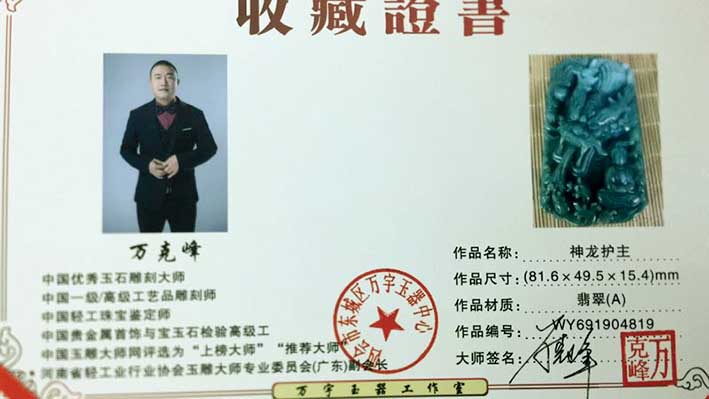 收藏證書
万克峰
中国优秀玉石雕刻大师
中国一级/高级工艺品雕刻师
中国轻工珠宝鉴定师
中国贵金属首饰与宝玉石检验高级工
中国玉雕大师网评选为“上榜大师”“推荐大师”
河南省轻工业行业协会玉雕大师专业委员会(广东)副会长
作品名称: 神龙护主
作品尺寸: (81.6×49.5×15.4)mm
作品材质: 翡翠(A)
作品编号: WY691904819
大师签名:
四会市东城区万宇玉器中心
万克峰
万宇玉器工作室